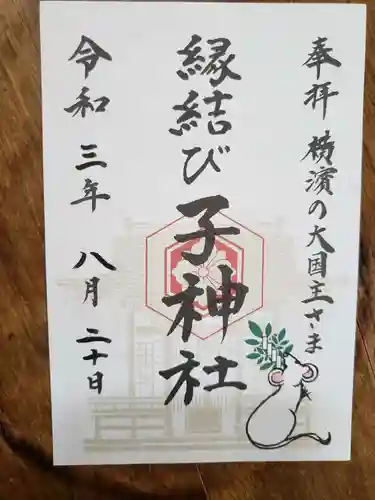 奉拝 横濱の大国主さま
縁結び子神社
令和三年 八月 二十日